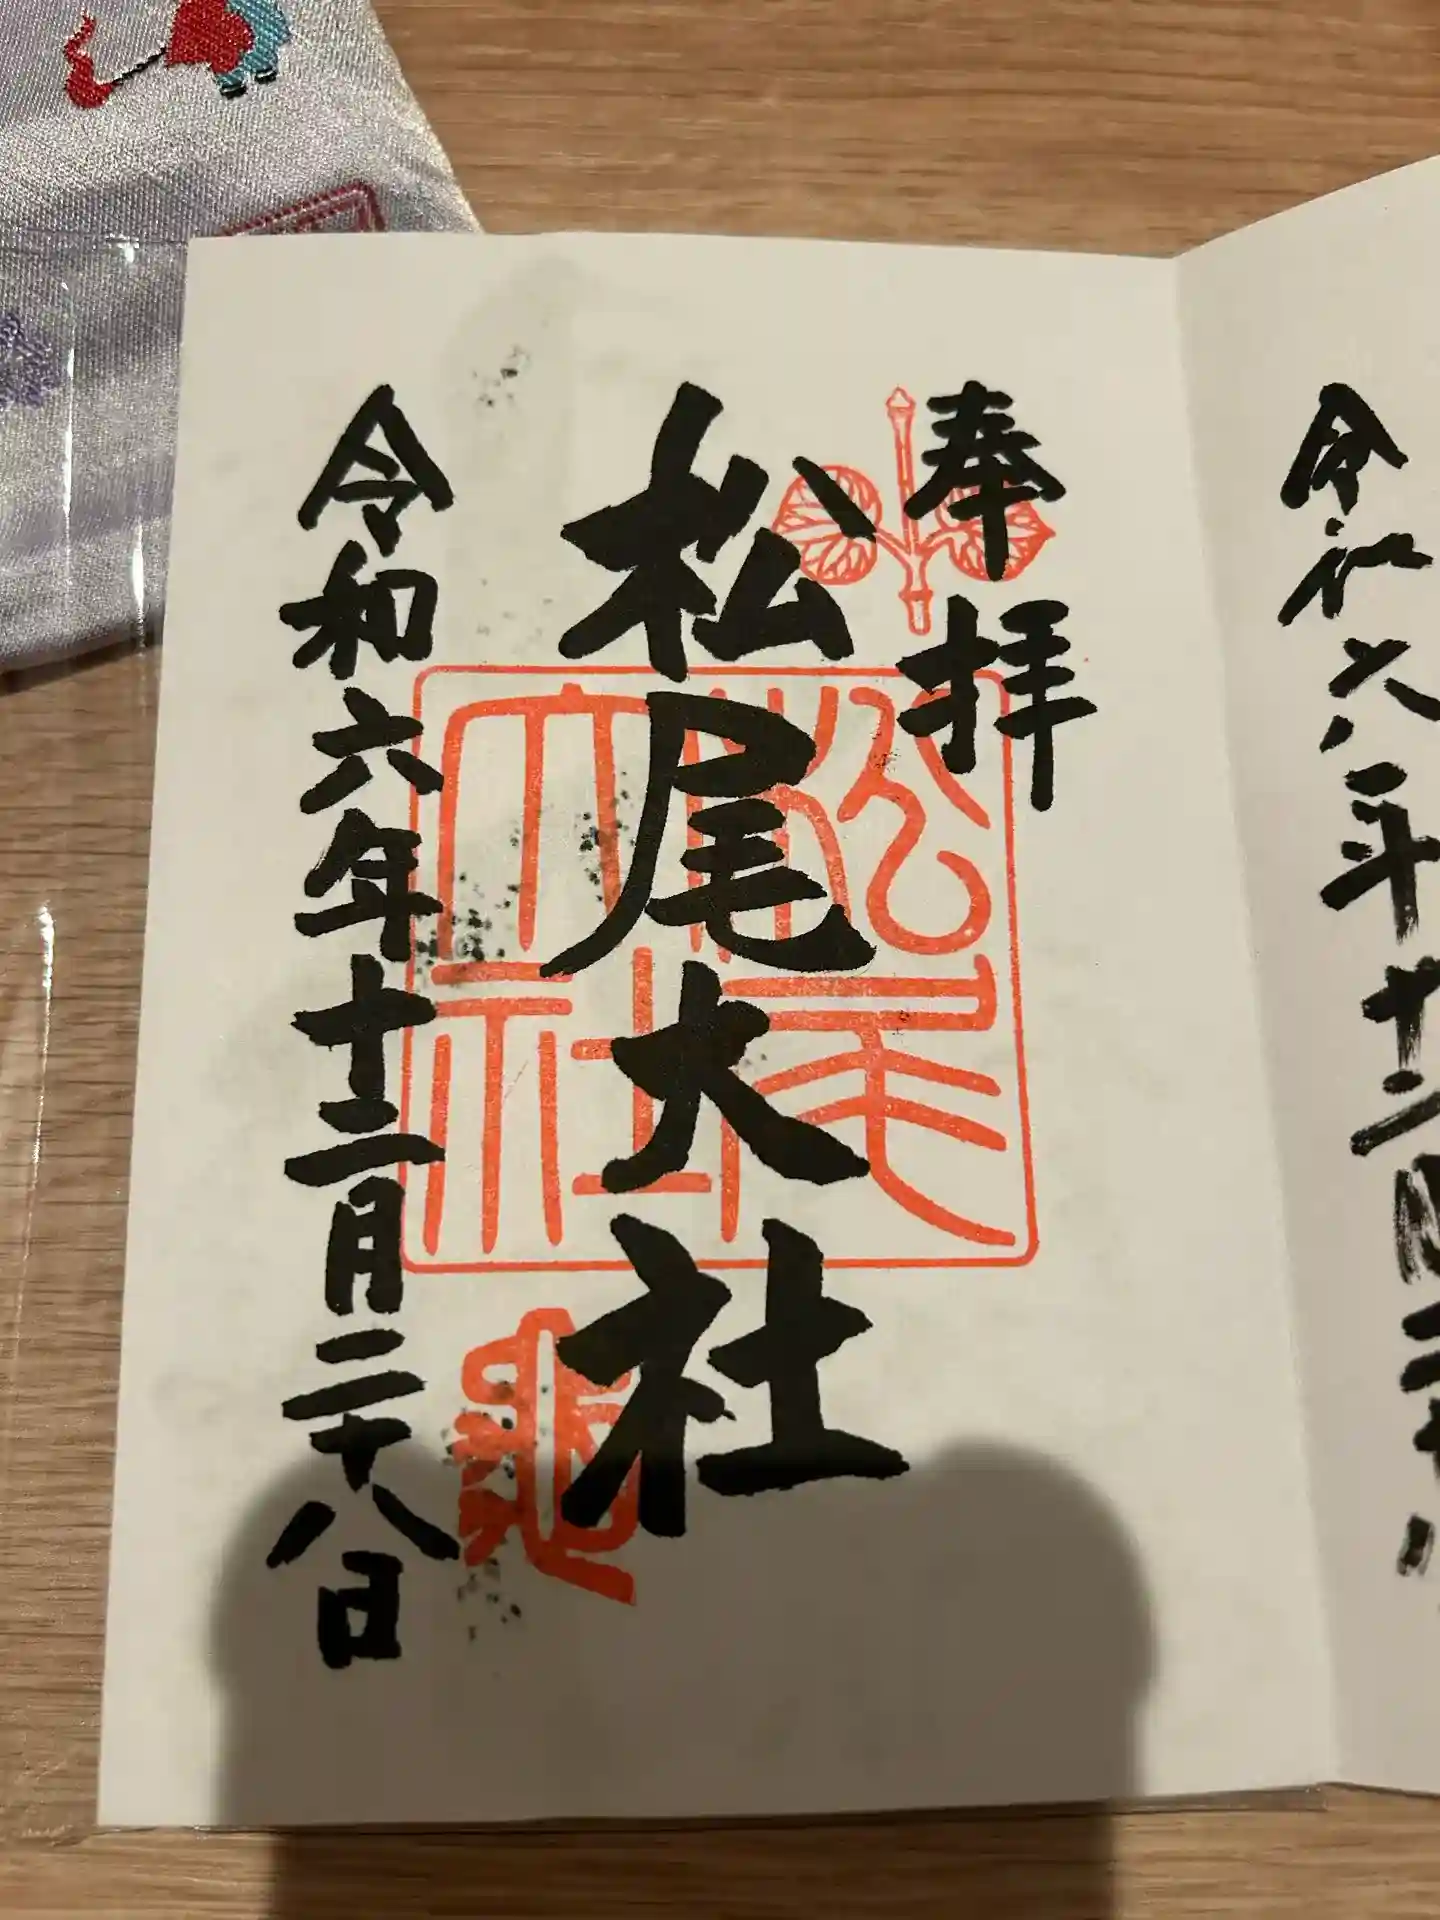 令和六年十二月二十八
奉拝
松尾大社
松尾大社
亀
令和六年十二月二十八日